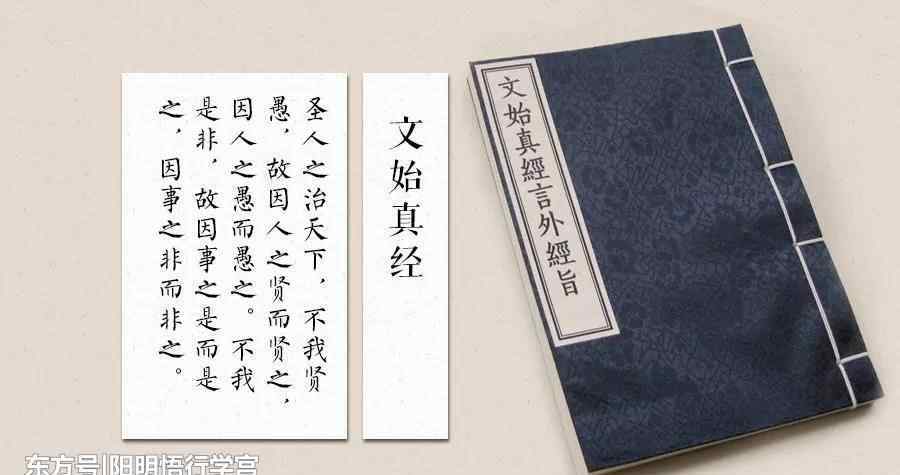 文始真經言外經旨
文始真经
圣人之治天下，不我贤
愚，故因人之贤而贤之，
因人之愚而愚之。不我
是非，故因事之是而是
之，因事之非而非之。
东方号|阳明悟行学宫